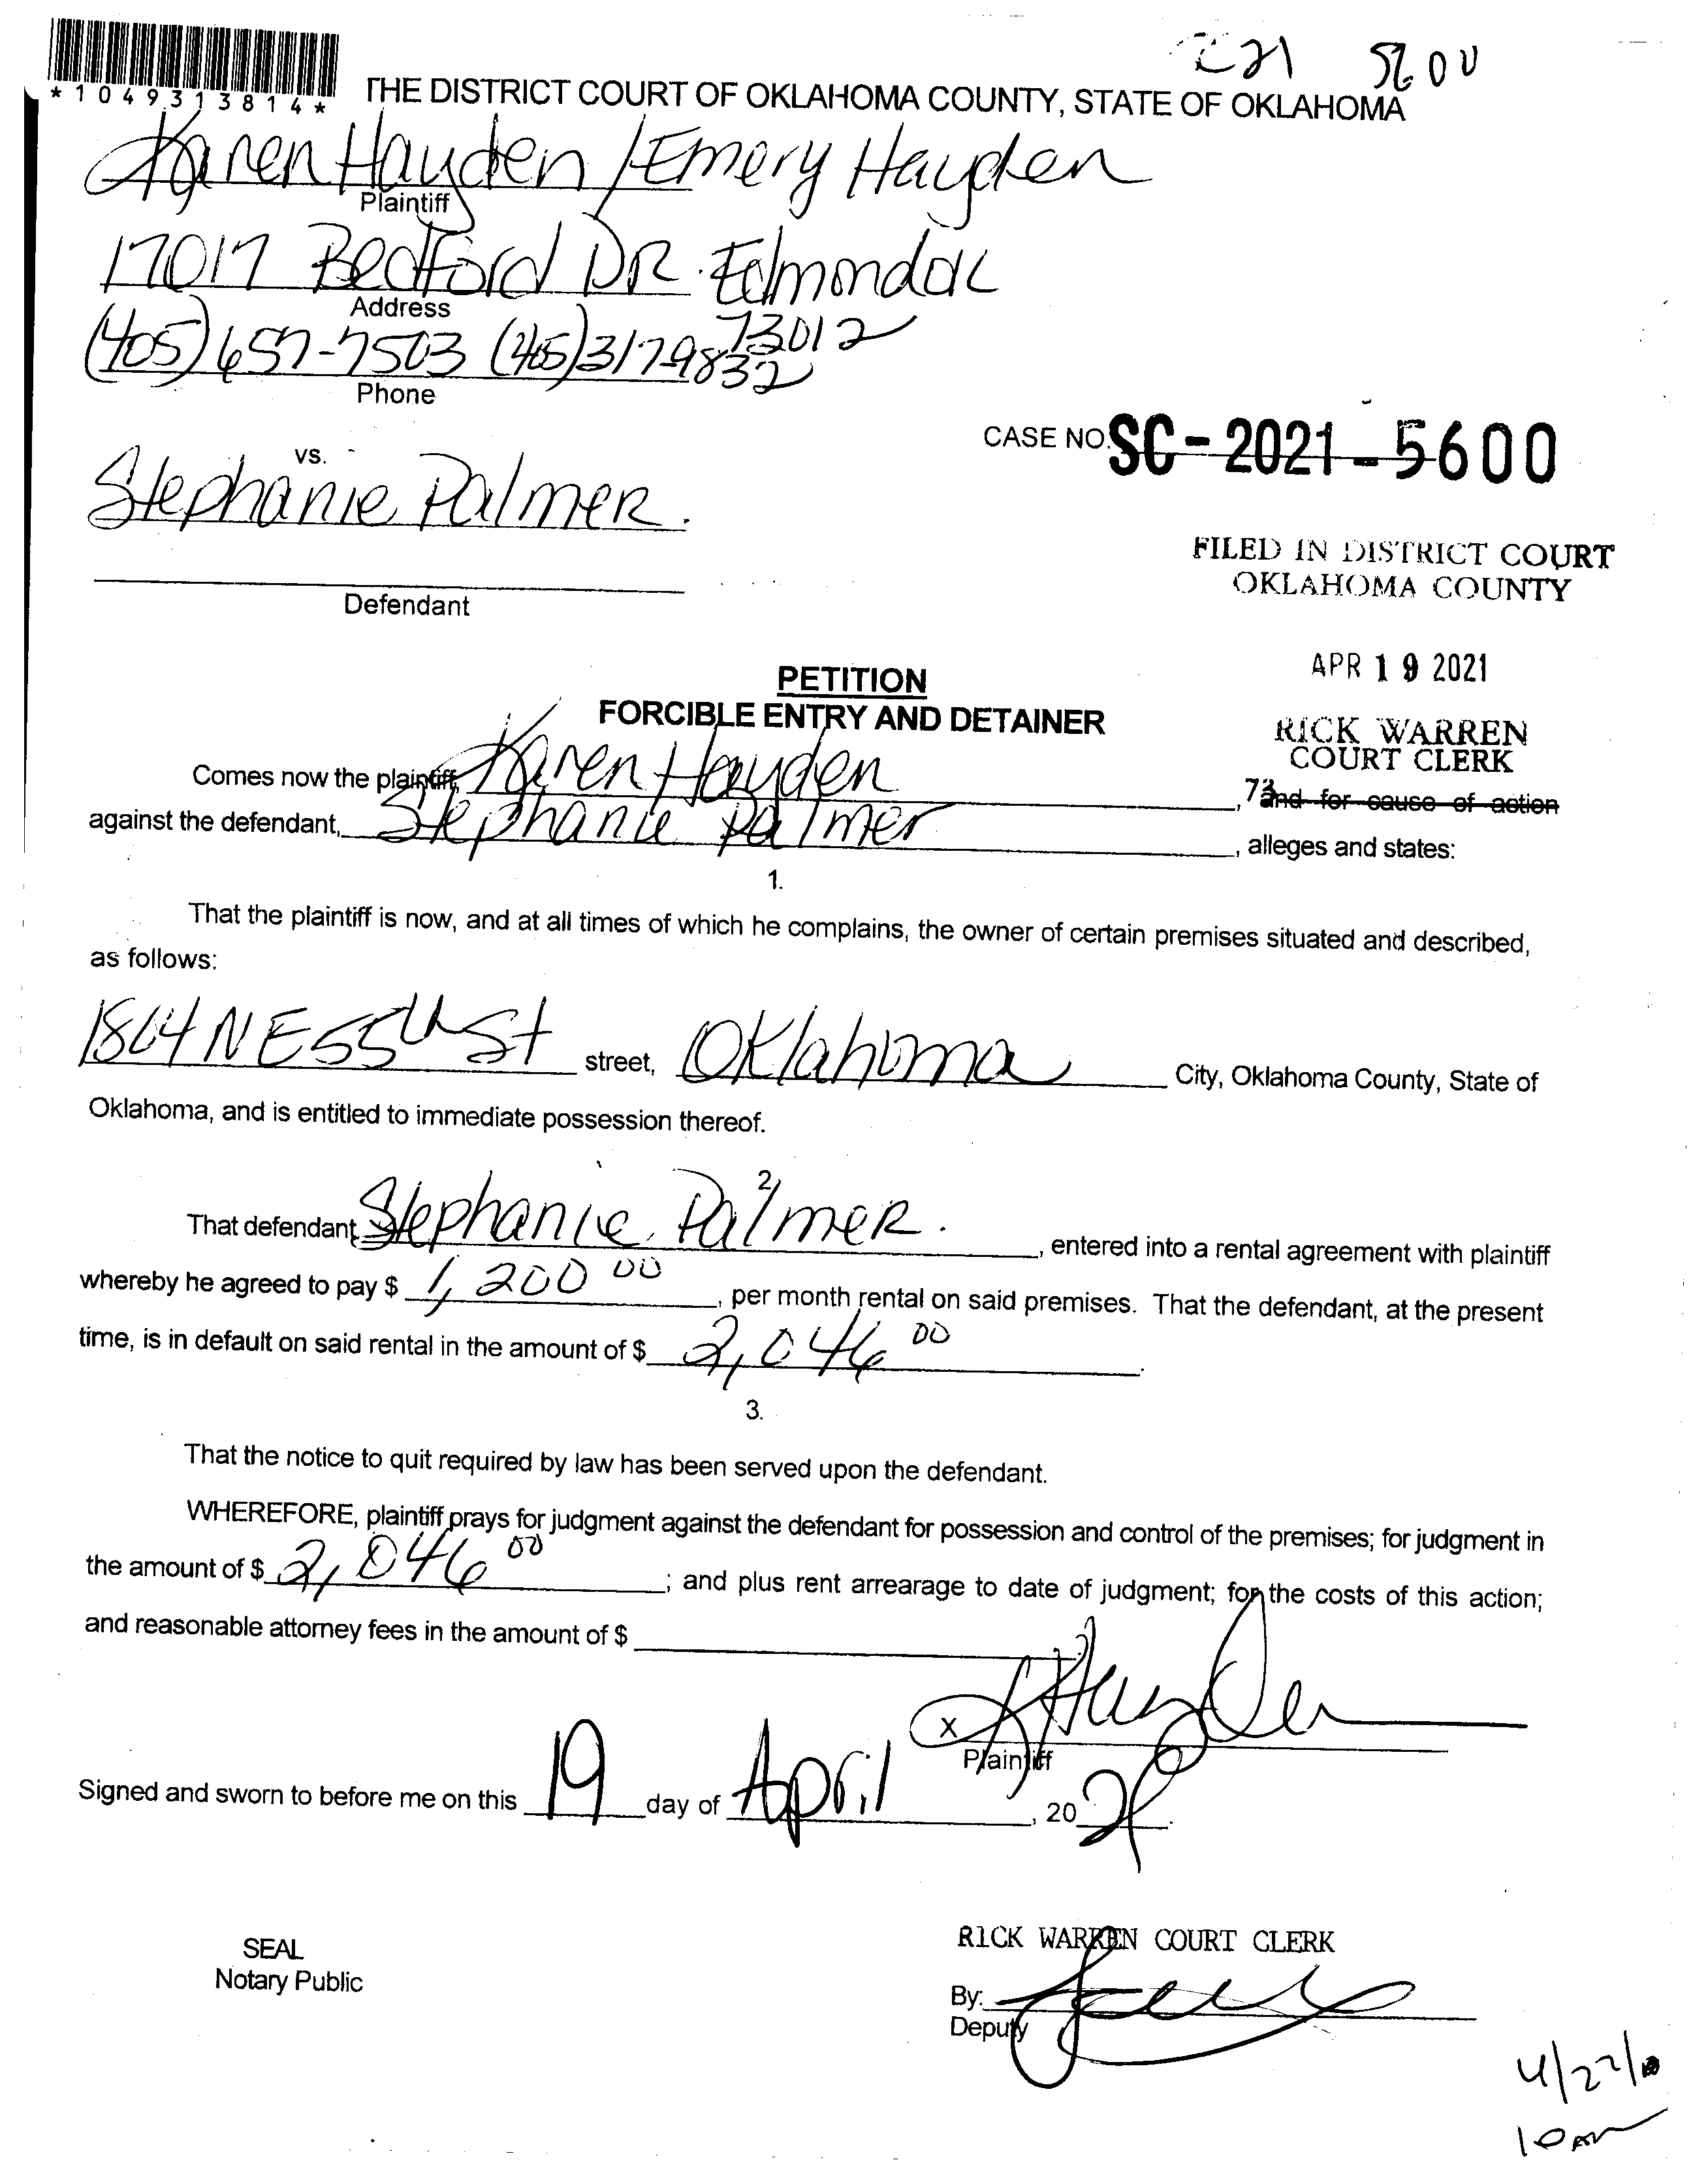 C21 5600
*1049313814*
THE DISTRICT COURT OF OKLAHOMA COUNTY, STATE OF OKLAHOMA
Karen Hayden / Emery Hayden
Plaintiff
17017 Bedford DR. Edmond OK
Address
73012
(405) 657-7503 (405) 317-9832
Phone
CASE NO. SC-2021-5600
vs.
Stephanie Palmer.
FILED IN DISTRICT COURT
OKLAHOMA COUNTY
Defendant
APR 19 2021
PETITION
FORCIBLE ENTRY AND DETAINER
RICK WARREN
COURT CLERK
Comes now the plaintiff, Karen Hayden, and for cause of action
against the defendant, Stephanie Palmer, alleges and states:
1.
That the plaintiff is now, and at all times of which he complains, the owner of certain premises situated and described,
as follows:
NE 55th St street, Oklahoma City, Oklahoma County, State of
Oklahoma, and is entitled to immediate possession thereof.
2.
That defendant, Stephanie Palmer., entered into a rental agreement with plaintiff
whereby he agreed to pay $ 1,200 00, per month rental on said premises. That the defendant, at the present
time, is in default on said rental in the amount of $ 2,046 00.
3.
That the notice to quit required by law has been served upon the defendant.
WHEREFORE, plaintiff prays for judgment against the defendant for possession and control of the premises; for judgment in
the amount of $ 2,046 00; and plus rent arrearage to date of judgment; for the costs of this action;
and reasonable attorney fees in the amount of $
X Hayden
Plaintiff
Signed and sworn to before me on this 19 day of April, 2021.
RICK WARREN COURT CLERK
SEAL
Notary Public
By:
Deputy
4/22/
10 am